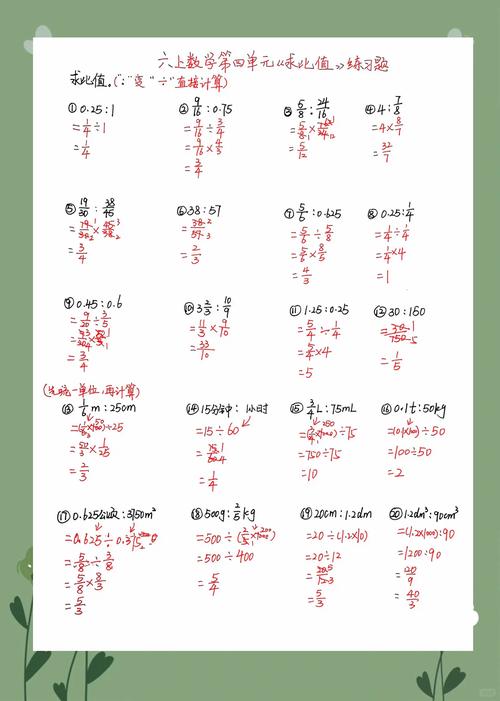 六上数学第四单元《求比值》练习题
求比值。(":"变"÷"直接计算)
① 0.25:1
= 1/4 ÷ 1
= 1/4
② 9/16 : 0.75
= 9/16 ÷ 3/4
= 9/16 × 4/3
= 3/4
③ 5/8 : 24/16
= 5/12
④ 4 : 7/8
= 4 × 8/7
= 32/7
⑤ 19/30 : 38/45
= 19/30 × 45/38
= 3/4
⑥ 38:57
= 38/57
= 2/3
⑦ 5/6 : 0.625
= 5/6 ÷ 5/8
= 5/6 × 8/5
= 4/3
⑧ 0.25 : 1/4
= 1/4 ÷ 1/4
= 1/4 × 4
= 1
⑨ 0.45:0.6
= 9/20 ÷ 3/5
= 3/4
⑩ 3 2/3 : 10/9
= 11/3 × 9/10
= 33/10
⑪ 1.25:0.25
= 5/4 ÷ 1/4
= 5/4 × 4
= 5
⑫ 30:150
= 1/5
(先统一单位,再计算)
⑬ 1/6 m : 250m
= 2/3
⑭ 15分钟:1小时
= 15÷60
= 15/60
= 1/4
⑮ 3/4 L : 75mL
= (3/4 × 1000) ÷ 75
= 750÷75
= 10
⑯ 0.1t:50kg
= 100÷50
= 2
⑰ 0.625公顷:3750m²
= 5/8 ÷ 3/8
= 5/8 × 8/3
= 5/3
⑱ 500g : 2/5 kg
= 500 ÷ (2/5 × 1000)
= 500÷400
= 5/4
⑲ 20cm:1.2dm
= 20÷(1.2×10)
= 20÷12
= 20/12
= 5/3
⑳ 1.2dm³:90cm³
= (1.2×1000):90
= 1200:90
= 120/9
= 40/3